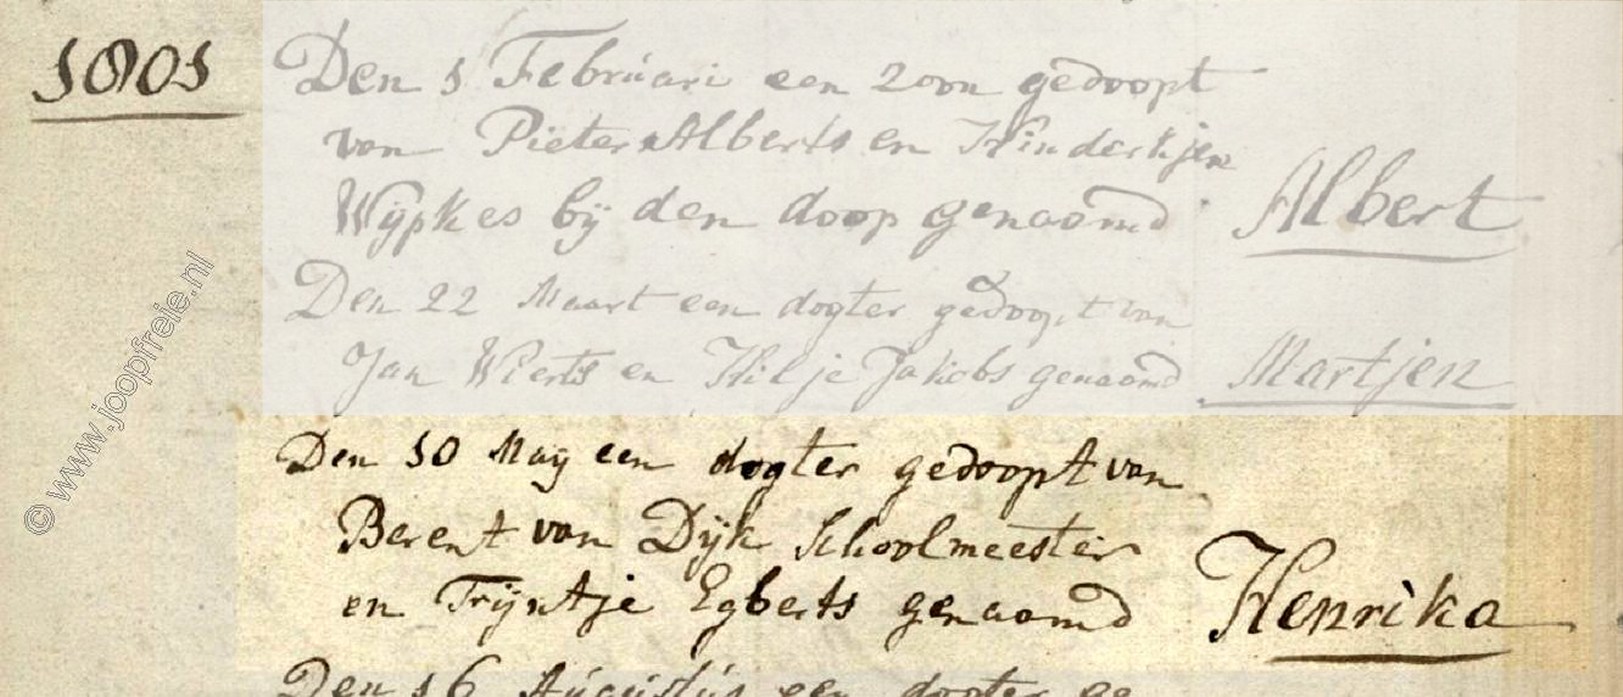 1801
Den 1 Februari een zoon gedoopt
van Pieter Alberts en Hinderkjen
Wÿpkes bÿ den doop genaamd Albert
Den 22 Maart een dogter gedoopt van
Jan Wierts en Hilje Jakobs genaamd Martjen
Den 10 Maÿ een dogter gedoopt van
Berent van Dÿk Schoolmeester
en Trÿntje Egberts genaamd Henrika
Den 16 Augustus een dogter ge
© www.joopfreie.nl